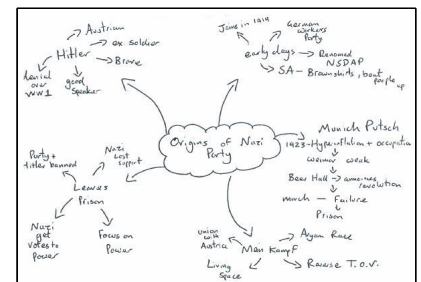 Origins of Nazi
Party
Austrian
Hitler
ex soldier
Brave
good
Speaker
Denial
over
WW1
early days
Joins in 1919
German
Workers
Party
Renamed
NSDAP
SA - Brownshirts, beat
people
up
Munich Putsch
1923 - Hyperinflation + occupation
Weimar weak
Beer Hall → announces
revolution
march — Failure
Prison
Mein Kampf
Aryan Race
Reverse T.O.V.
Living
Space
union
with
Austria
Leaves
Prison
Nazi
Lost
support
Party +
Hitler banned
Nazi
get
Votes to
Power
Focus on
Power